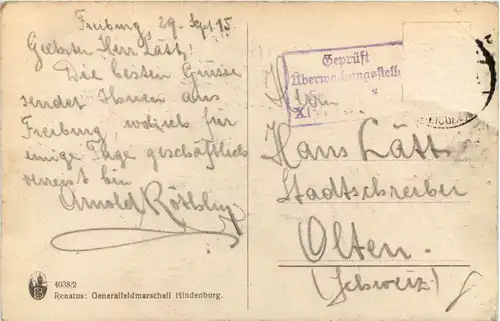 Freiburg, 29. Sept 15
Geehrter Herr Lätt!
Die besten Grüsse
sendet Ihnen aus
Freiburg, wo ich für
einige Tage geschäftlich
verreist bin
Arnold
Geprüft
Überwachungsstelle
XI
Herrn
Hans Lätt
Stadtschreiber
Olten.
(Schweiz)
4038/2
Renatus: Generalfeldmarschall Hindenburg.